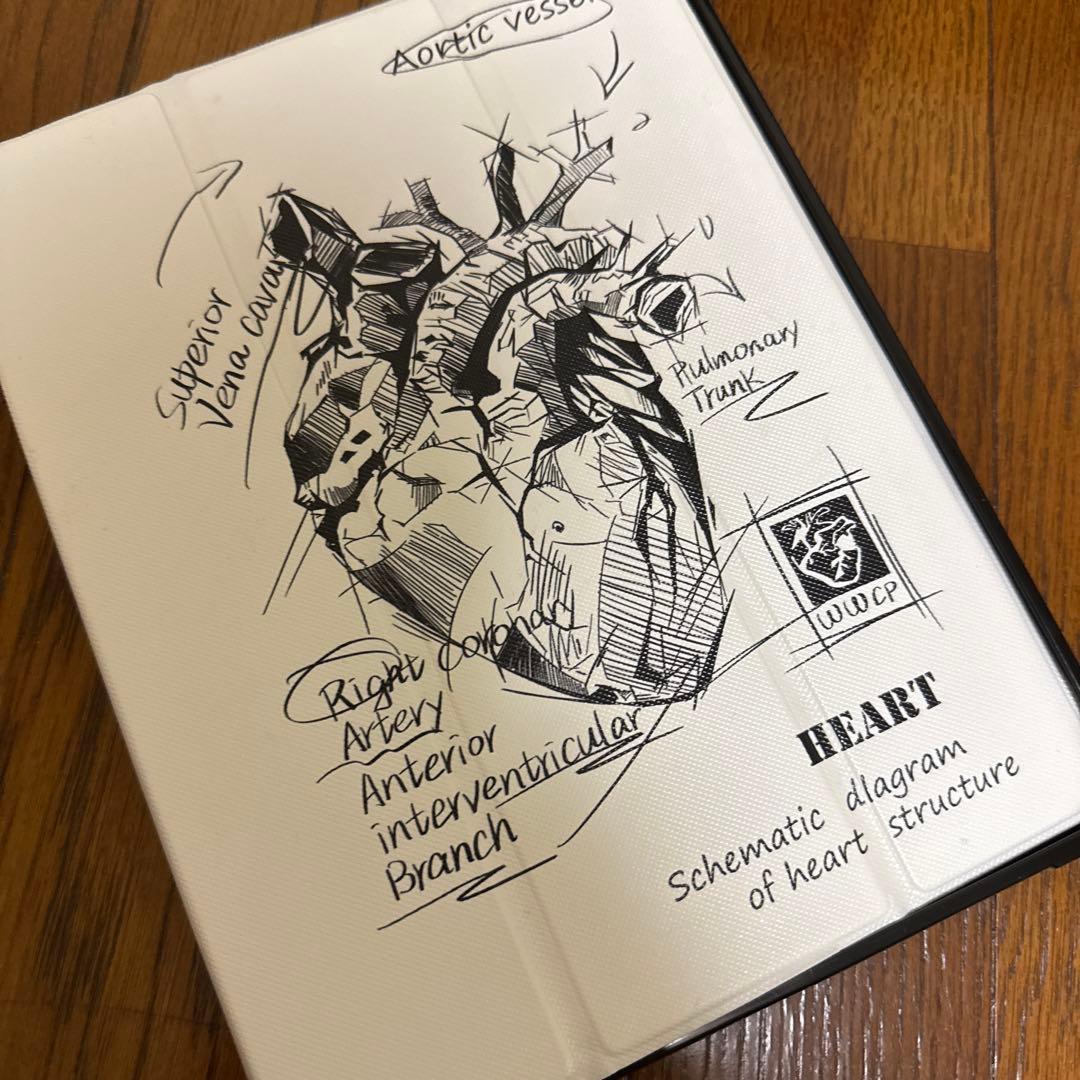 Aortic vessel
Superior
Vena cava
Pulmonary
Trunk
WWCP
Right Coronary
Artery
Anterior
interventricular
Branch
HEART
Schematic dIagram
of heart structure